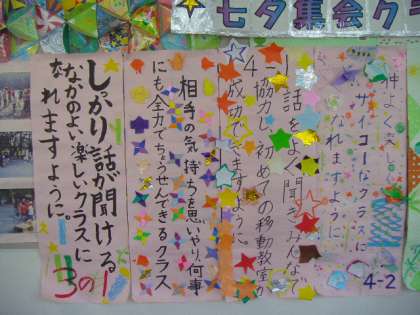 七夕集会クラ
仲よく楽しく
サイコーなクラスに
なれますように
4-2
話をよく聞き、みんなで
協力し、初めての移動教室が
成功できますように。
相手の気持ちを思いやり、何事
にも全力でちょうせんできるクラス
しっかり話が聞ける
なかのよい楽しいクラスに
なれますように。
3の1